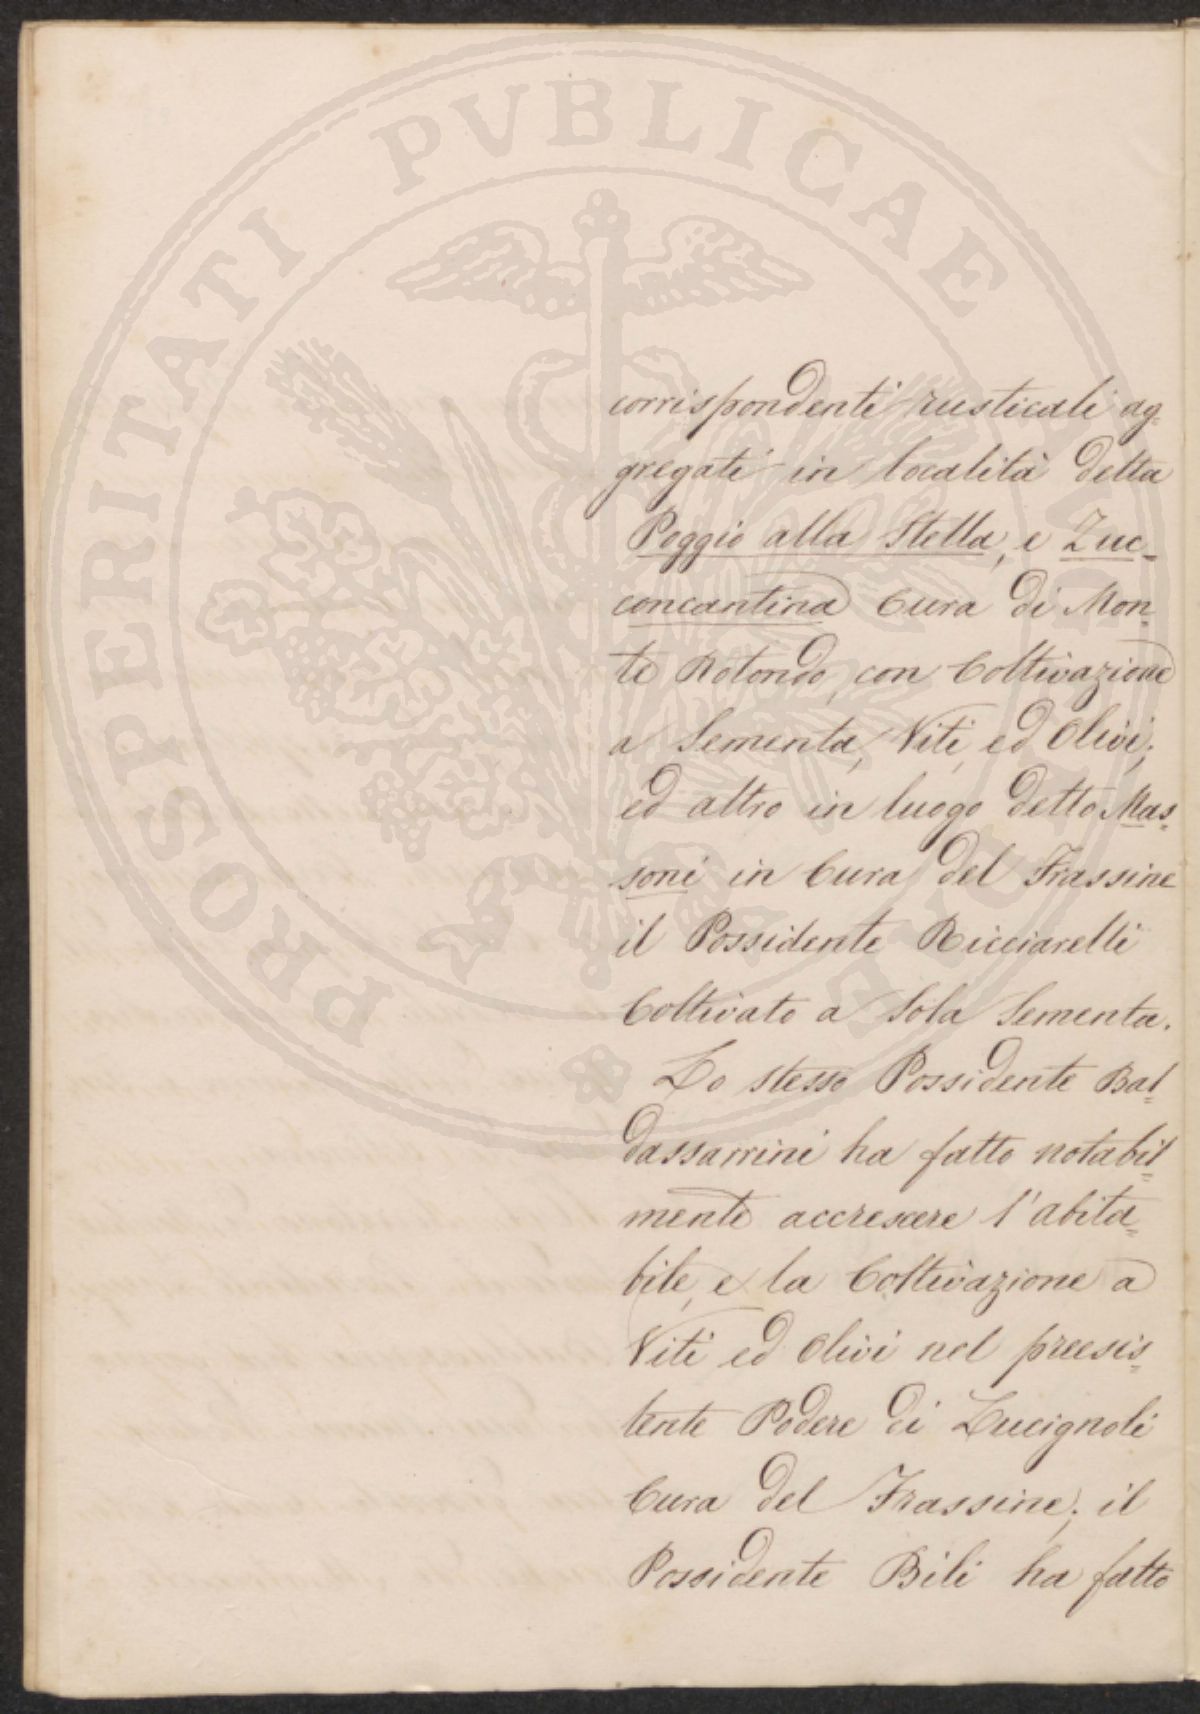 PROSPERITATI PVBLICAE
corrispondenti rusticali ag=
gregati in località detta
Poggio alla Stella, e Zuc=
concantina Cura di Mon=
te Rotondo, con Coltivazione
a Sementa, Viti, ed Olivi;
ed altro in luogo detto Mas=
soni in Cura del Frassine
il Possidente Ricciarelli
Coltivato a Sola Sementa.
Lo stesso Possidente Bal=
dassarrini ha fatto notabil=
mente accrescere l'abita=
bile, e la Coltivazione a
Viti ed Olivi nel preesis=
tente Podere di Lucignoli
Cura del Frassine; il
Possidente Bili ha fatto